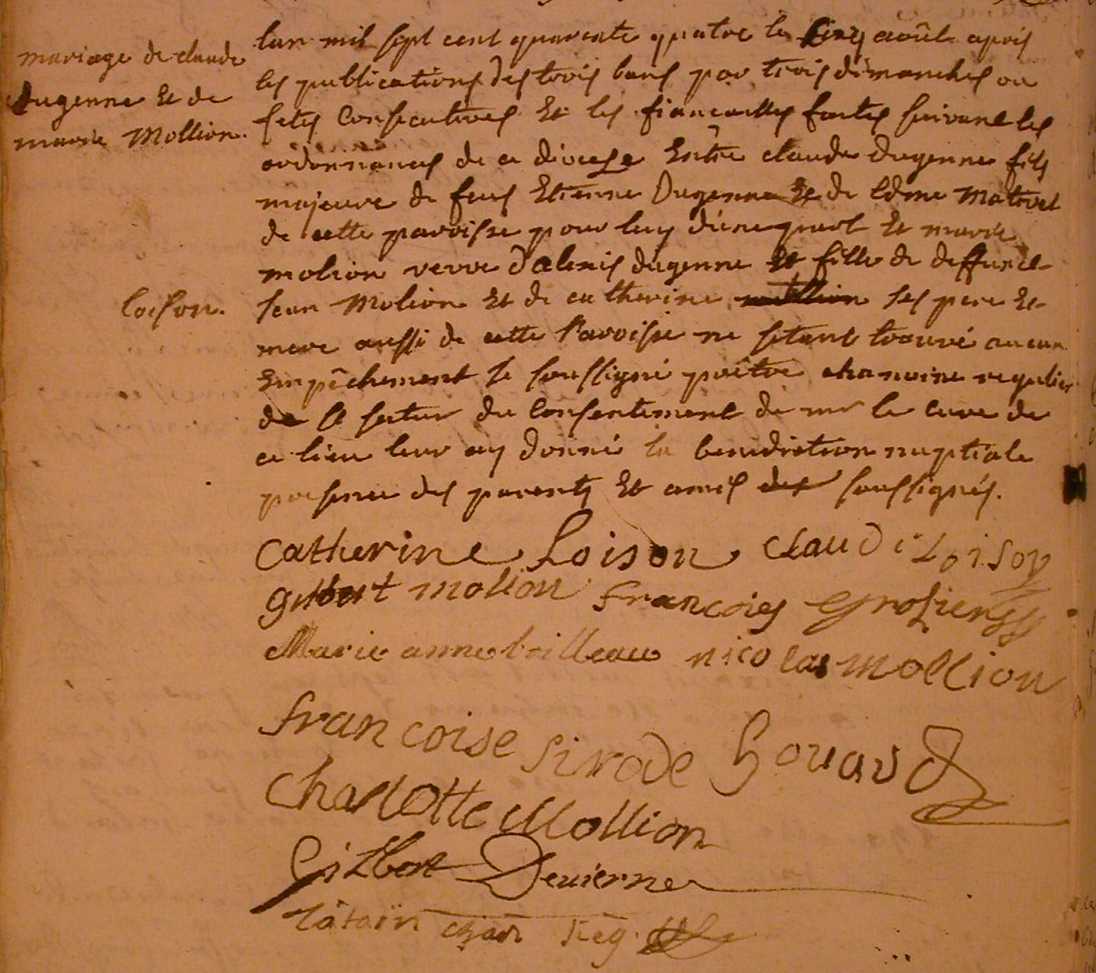 mariage de claude
dugenne Et de
marie Mollion.
lan mil sept cent quarente quatre le cinq août apres
les publications des trois bans par trois dimanches ou
fetes Consecutives Et les fiancailles faites suivant les
ordonnances de ce diocese Entre claude dugenne fils
majeure de feus Etienne Dugenne Et de Edme
de cette paroisse pour luy d'une part Et marie
molion veuve d'alexis dugenne Et fille de deffunct
Jean Molion Et de catherine ses pere Et
loison.
mere aussi de cette Paroisse ne s'etant trouvé aucun
Empêchement Je soussigné prêtre chanoine regulier
de du Consentement de mr le cure de
ce lieu leur ay donné la benediction nuptiale
presence des parents Et amis soussignés.
Catherine Loison Claude Loison
gilbert mollion francois
Marie anne boilleau nicolas mollion
francoise sirode
Charlotte Mollion
Gilbert Devienne
chan reg.